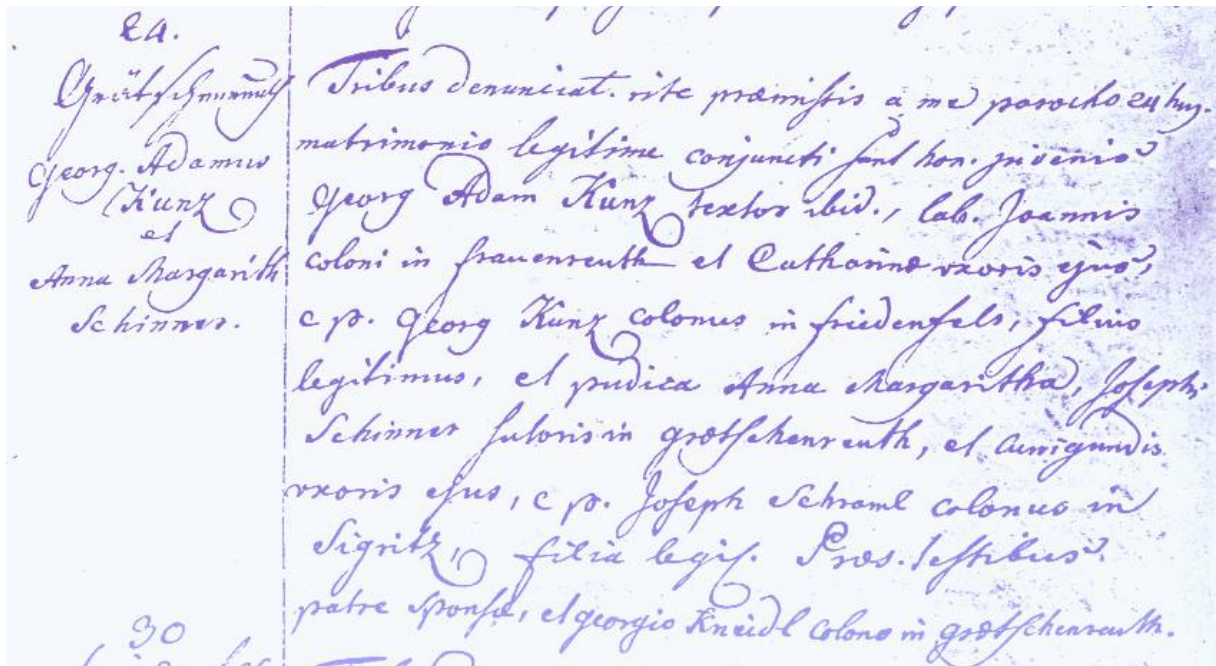 24.
Grötschenreuth
Georg. Adamus
Kunz
et
Anna Margarith
Schinner.
Tribus denunciat. rite præmissis a me parocho 24 huj.
matrimonio legitime conjuncti sunt hon. juvenis
Georg Adam Kunz textor ibid., lab. Joannis
coloni in frauenreuth et Catharinæ uxoris ejus,
c p. Georg Kunz colonus in friedenfels, filius
legitimus, et pudica Anna Margaritha, Josephi
Schinner sutoris in grötschenreuth, et Cunigundis
uxoris ejus, c p. Joseph Schraml colonus in
Sigritz, filia legis. Præs. testibus
patre sponsæ, et georgio Kneidl colono in grötschenreuth.
30